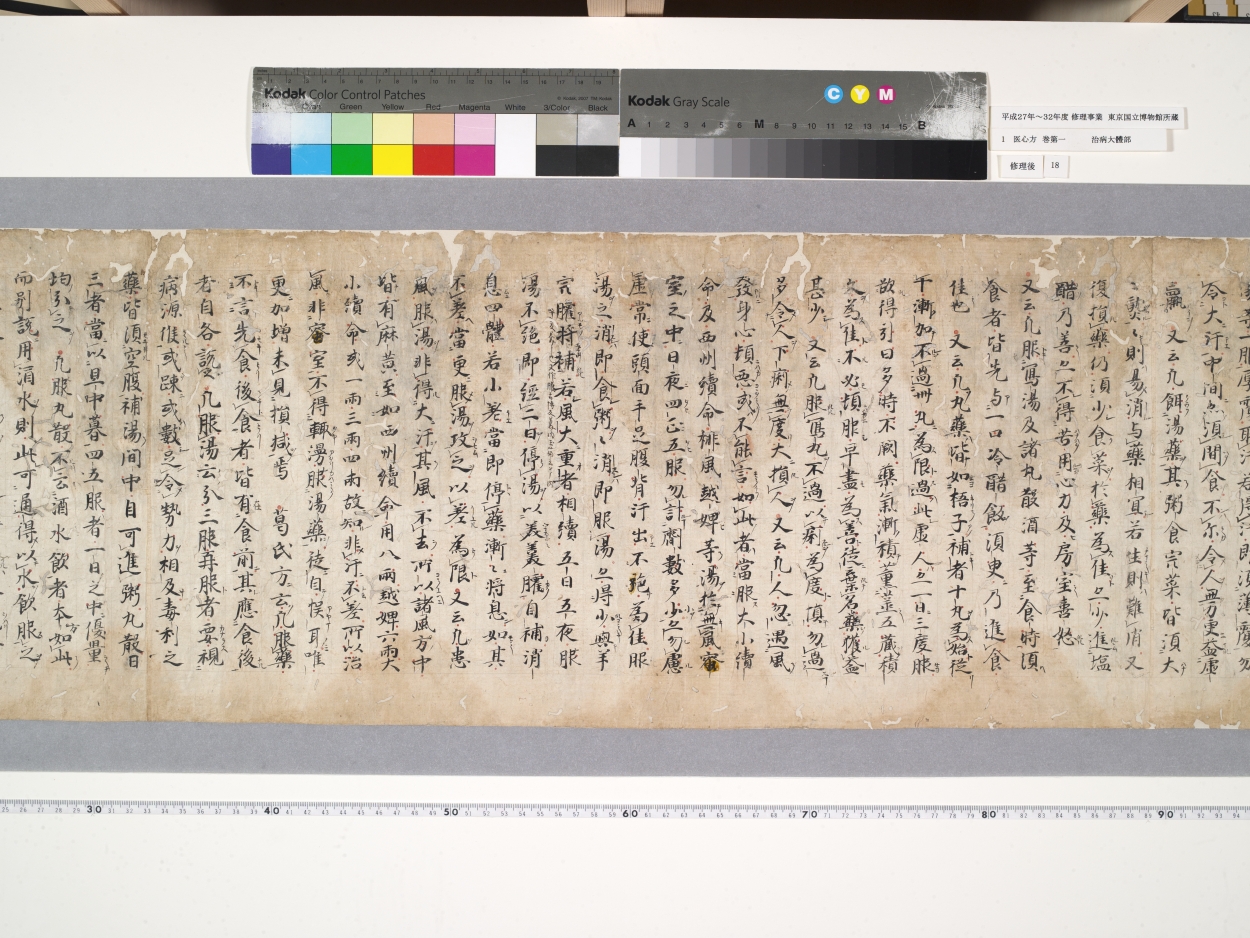 Kodak Color Control Patches
Green Yellow Red Magenta White 3/Color Black
Kodak Gray Scale
C Y M
A 1 2 3 4 5 6 M 8 9 10 11 12 13 14 15 B
平成27年～32年度 修理事業 東京国立博物館所蔵
1 医心方 巻第一 治病大體部
修理後 18
冷大汗中間亦須間食不尔令人無力更益虚
羸 又云凡餌湯藥其粥食完菜皆須大
熟〻則易消与藥相宜若生則難消又
復損藥仍須少食菜於藥為佳亦少進塩
醋乃善亦不得苦用心力及房室喜怒
又云凡服寫湯及諸丸散酒等至食時須
食者皆先与一口冷醋飯須臾乃進食
佳也 又云凡丸藥皆如梧子補者十丸為始従
一漸加不過卌丸為限過此虚人亦一日三度服
欲得引日多時不闕藥氣漸積薫蒸五蔵積
久為佳不必頻服早盡為善徒棄名藥獲益
甚少 又云凡服寫丸不過以利為度須勿過
多令人下痢無度大損人 又云凡人忽遇風
發身心頓悪或不能言如此者當服大小續
命及西州續命排風越婢等湯於無風密
室之中日夜四五服勿計劑數多少亦勿慮
虚常使頭面手足腹背汗出不絶為佳服
湯之消即食粥〻消即服湯亦得少與羊
完臛将補若風大重者相續五日五夜服
湯不絶即經二日停湯以羹臛自補消
息四體若小差當即停藥漸〻将息如其
不差當更服湯攻之以差為限 又云凡患
風服湯非得大汗其風不去所以諸風方中
皆有麻黄至如西州續命用八兩越婢六兩大
小續命或一兩三兩四兩故知非汗不差所以治
風非密室不得輙漫服湯藥徒自悮耳唯
更加増未見損减焉 葛氏方云凡服藥
不言先食後食者皆在食前其應食後
者自各説 凡服湯云分三服再服者要視
病源候或踈或數足令勢力相及毒利之
藥皆須空腹補湯間中自可進粥丸散日
三者當以旦中暮四五服者一日之中優量
均分之 凡服丸散不云酒水飲者本方如此
而別説用酒水則此可通得以水飲服之
30 40 50 60 70 80 90